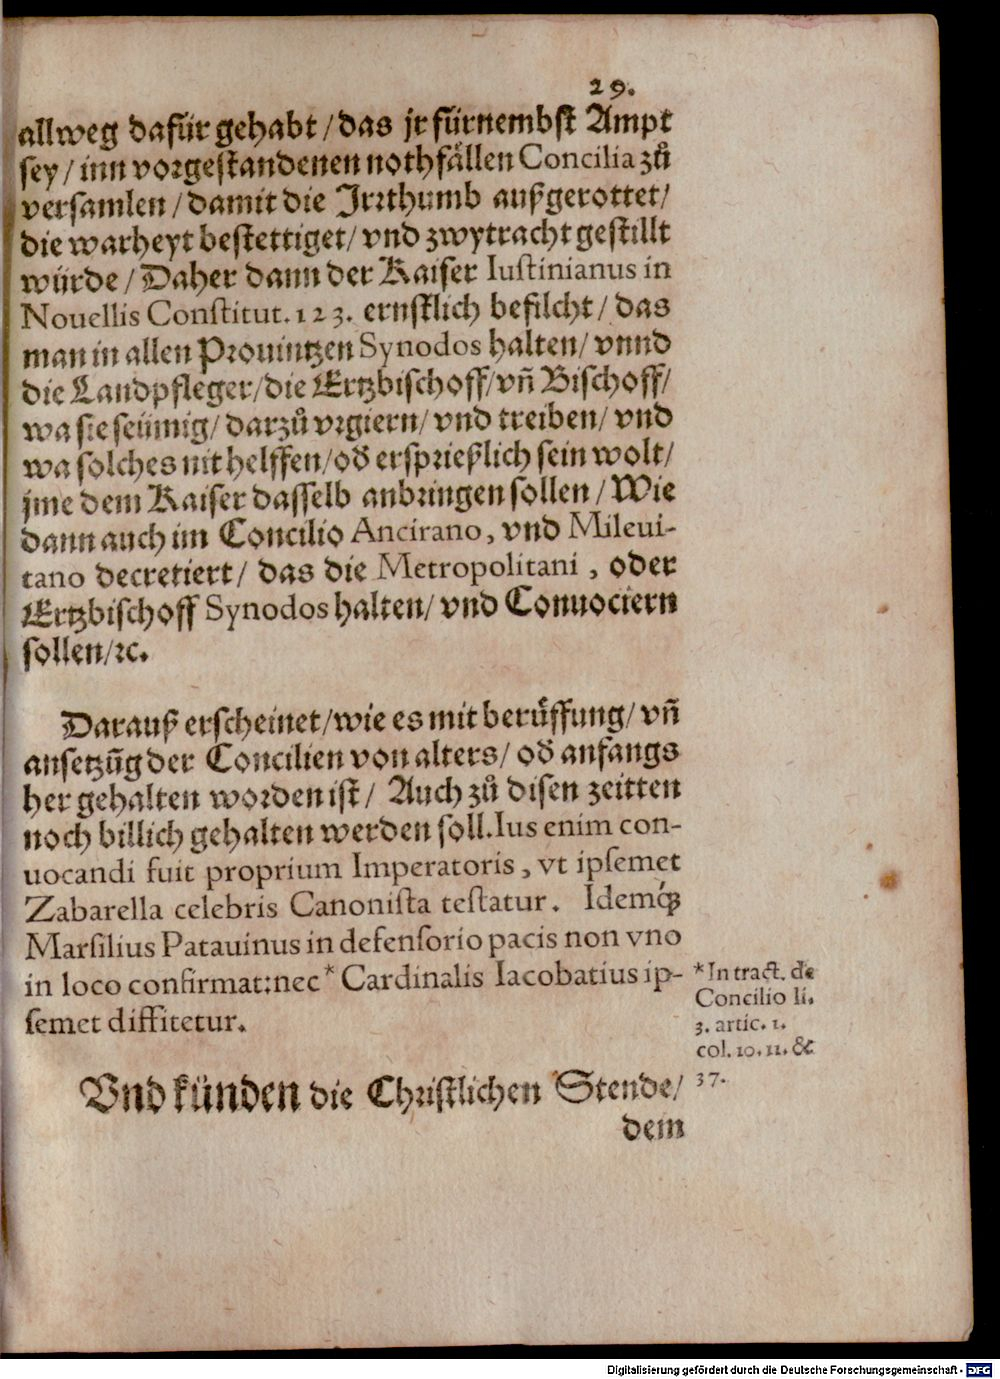 29.
allweg dafür gehabt / das jr fürnembst Ampt
sey / inn vorgestandenen nothfällen Concilia zů
versamlen / damit die Irrthumb außgerottet /
die warheyt bestettiget / vnd zwytracht gestillt
würde / Daher dann der Kaiser Iustinianus in
Nouellis Constitut. 123. ernstlich befilcht / das
man in allen Prouintzen Synodos halten / vnnd
die Landpfleger / die Ertzbischoff / vñ Bischoff /
wa sie seümig / darzů vrgiern / vnd treiben / vnd
wa solches nit helffen / od̕ ersprießlich sein wolt /
jme dem Kaiser dasselb anbringen sollen / Wie
dann auch im Concilio Ancirano, vnd Mileui-
tano decretiert / das die Metropolitani , oder
Ertzbischoff Synodos halten / vnd Conuociern
sollen / ꝛc.
Darauß erscheinet / wie es mit berůffung / vñ
ansetzũg der Concilien von alters / od̕ anfangs
her gehalten worden ist / Auch zů disen zeitten
noch billich gehalten werden soll. Ius enim con-
uocandi fuit proprium Imperatoris , vt ipsemet
Zabarella celebris Canonista testatur. Idemq́;
Marsilius Patauinus in defensorio pacis non vno
in loco confirmat: nec * Cardinalis Iacobatius ip-
semet diffitetur.
* In tract. de
Concilio li.
3. artic. 1.
col. 10. 11. &
37.
Vnd künden die Christlichen Stende /
dem
Digitalisierung gefördert durch die Deutsche Forschungsgemeinschaft - DFG